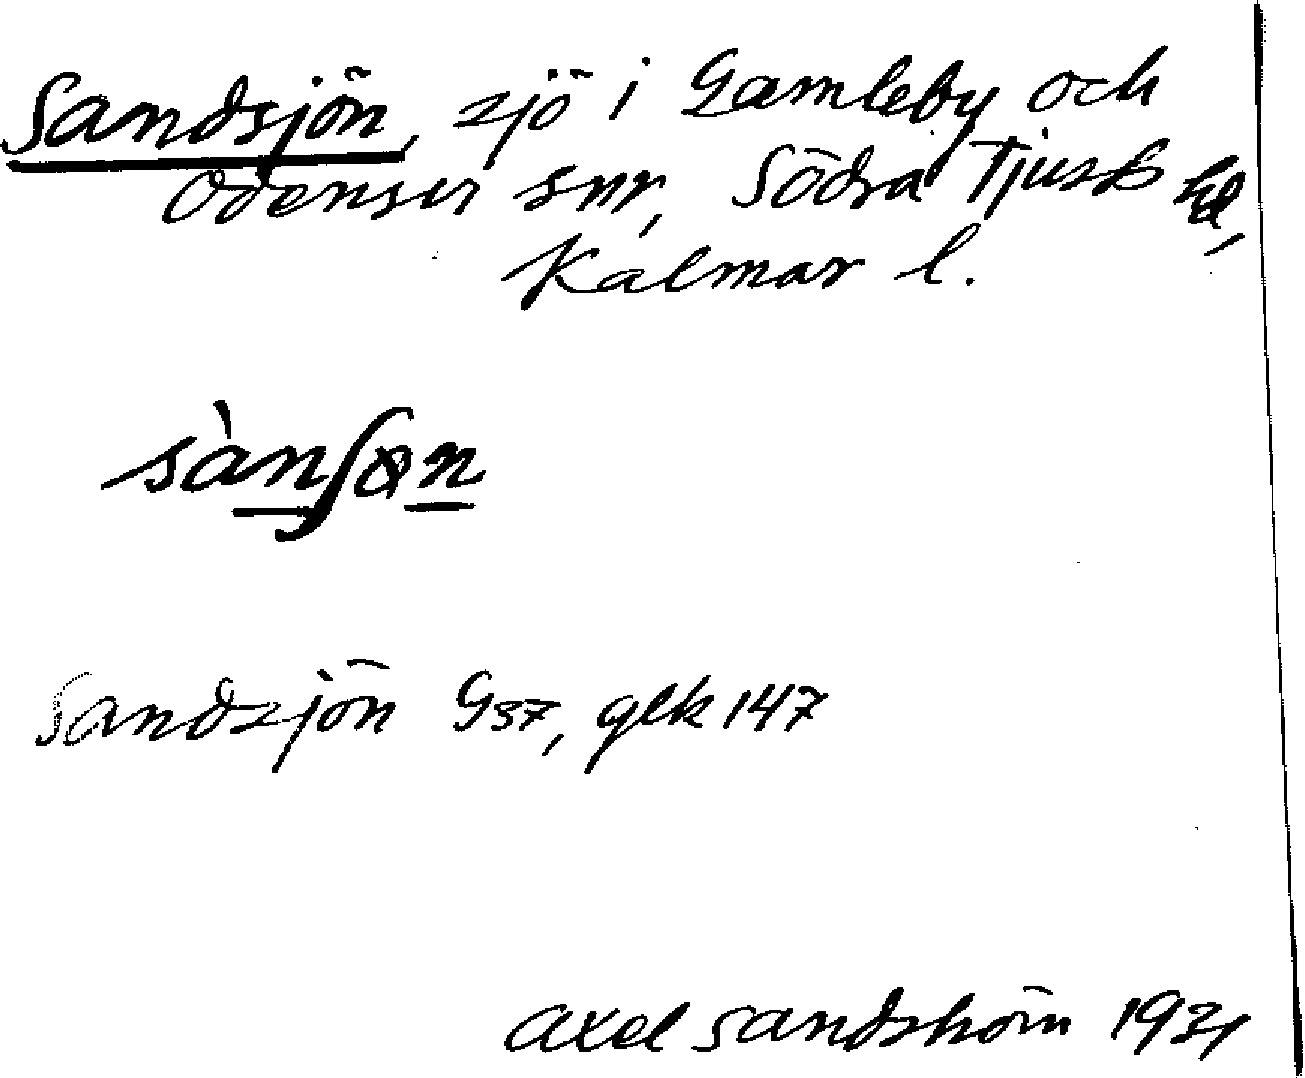 Sandsjön, sjö i Gamleby och
Odensvi snr, Södra Tjusts hd,
Kalmar l.
sànʃøn
Sandsjön G37, glk 147
Axel Sandström 1931